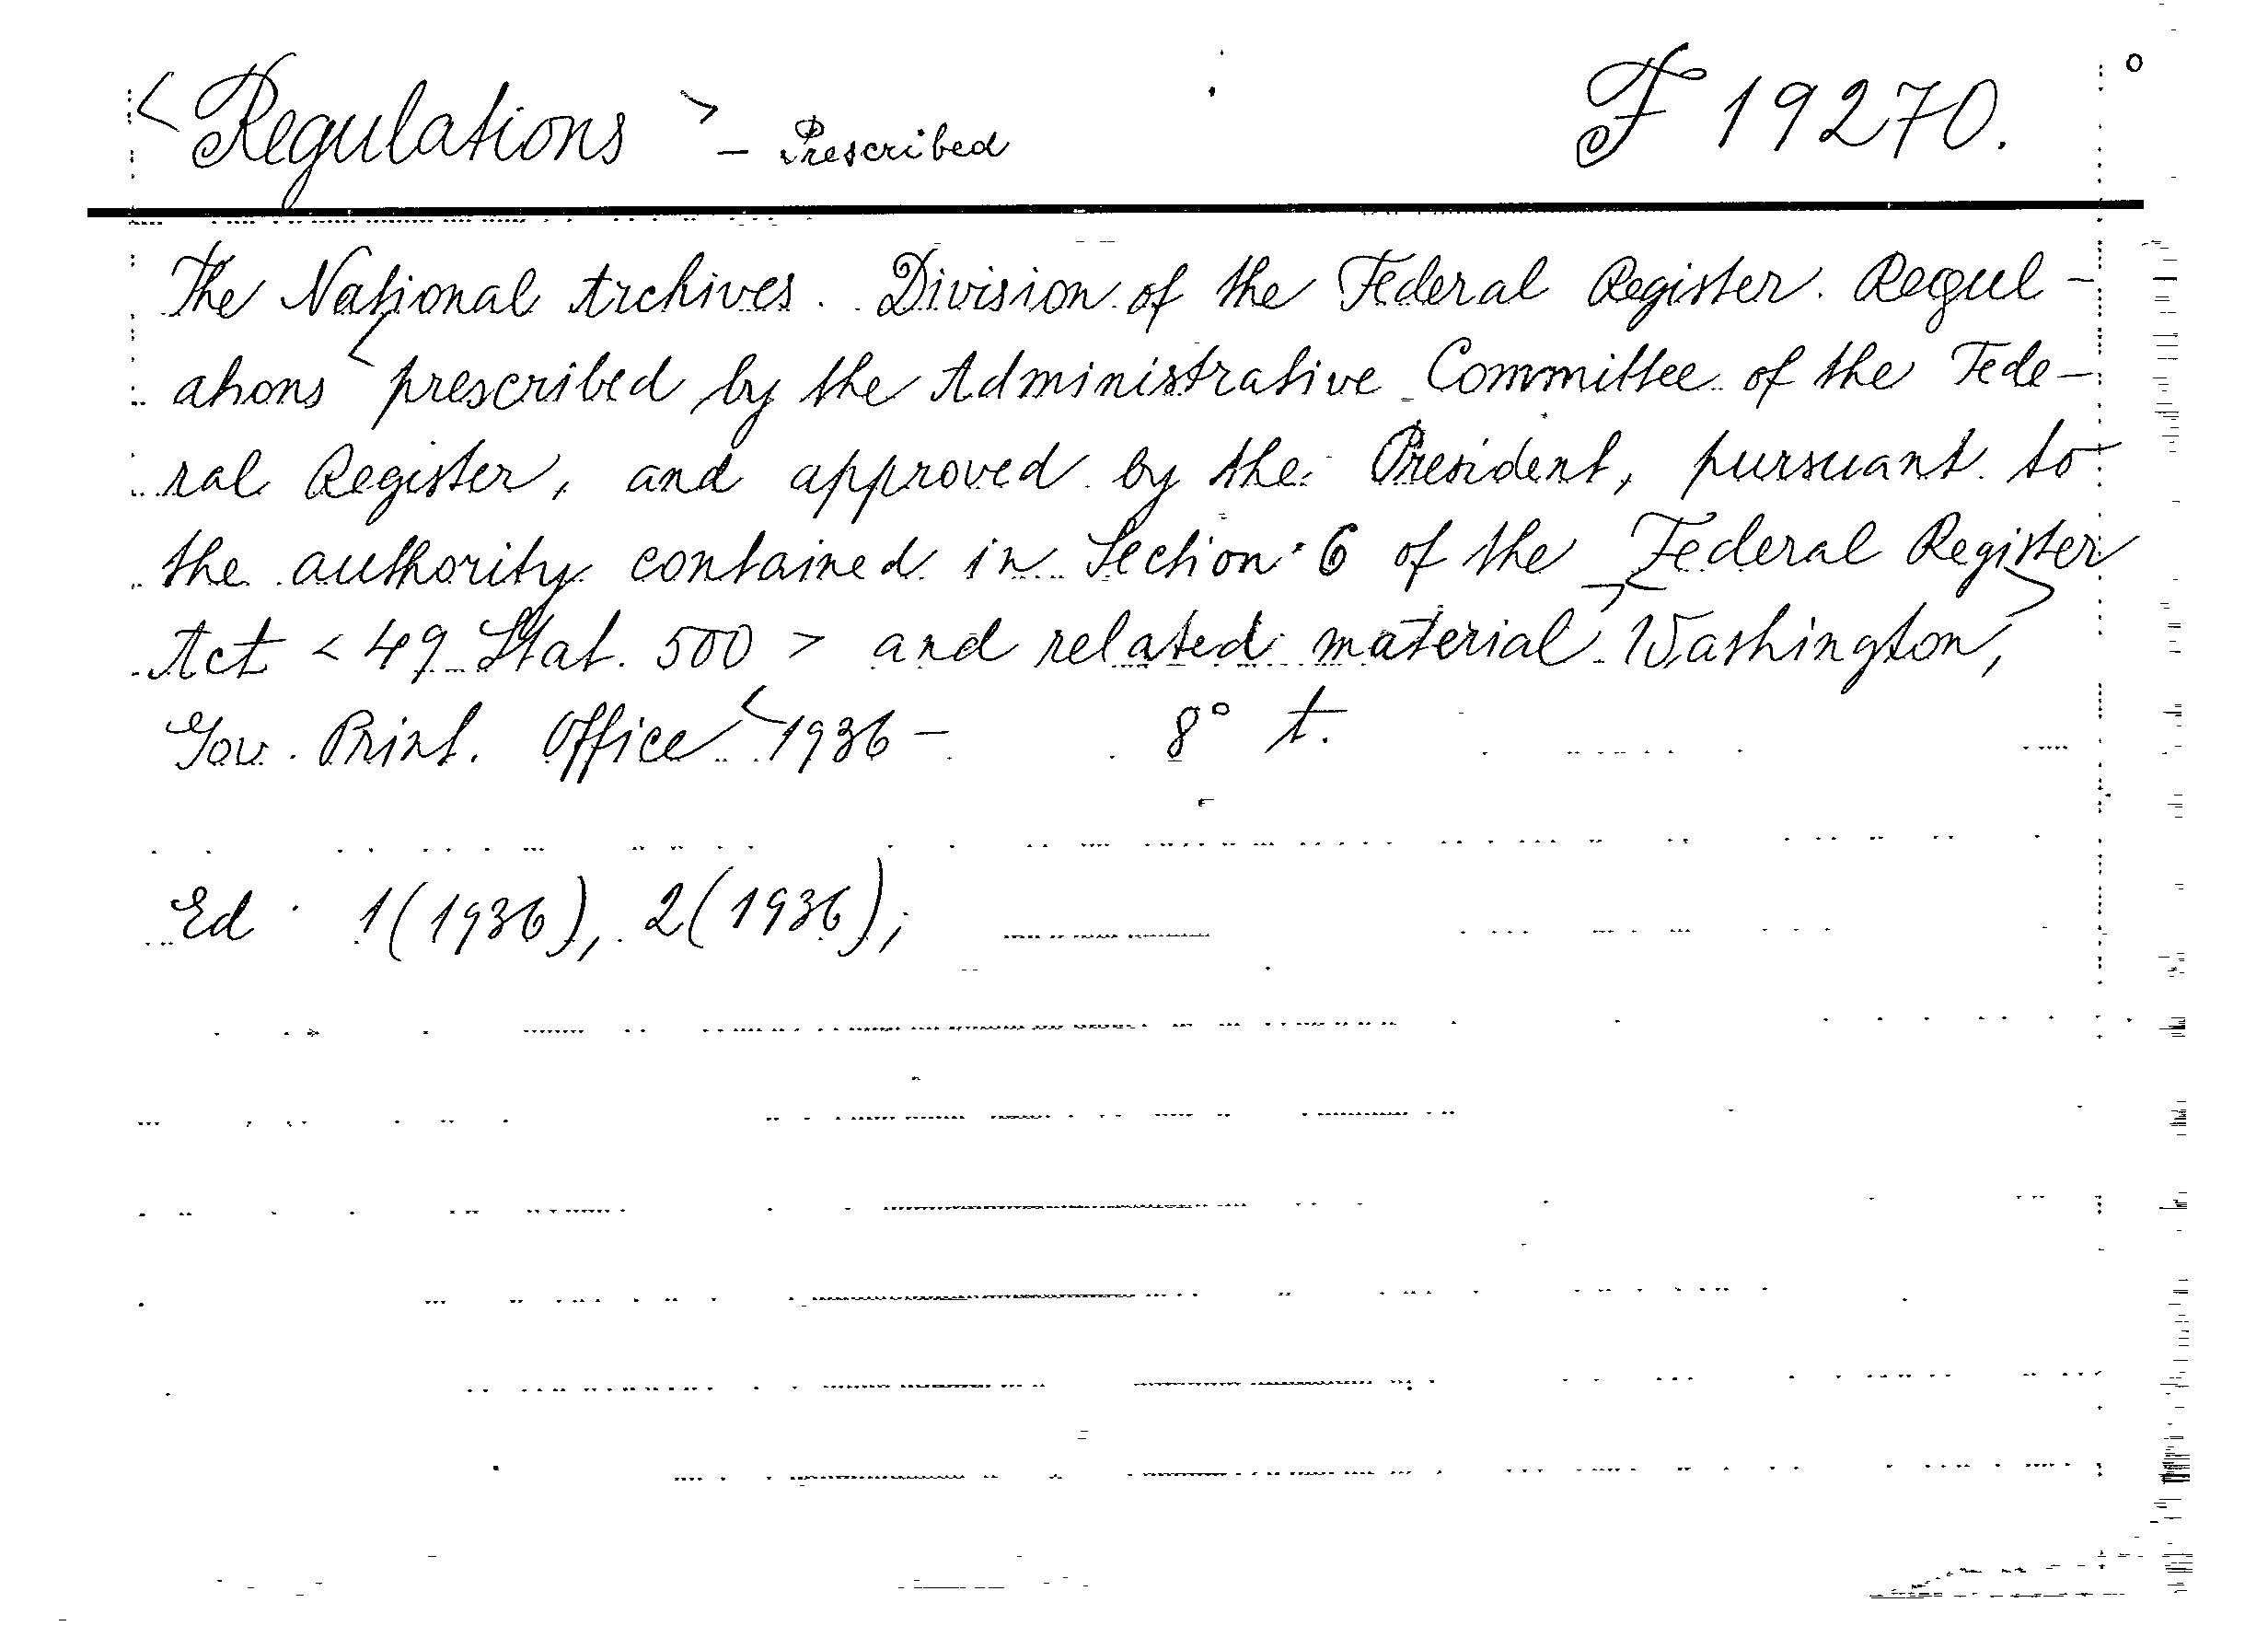 <Regulations> - Prescribed F 19270.
The National Archives. Division of the Federal Register. Regul-
ations <prescribed by the Administrative Committee of the Fede-
ral Register, and approved by the President, pursuant to
the authority contained in Section 6 of the Federal Register
Act <49 Stat. 500> and related material> <Washington,>
Gov. Print. Office <1936- 8° t.
Ed. 1(1936), 2(1936);